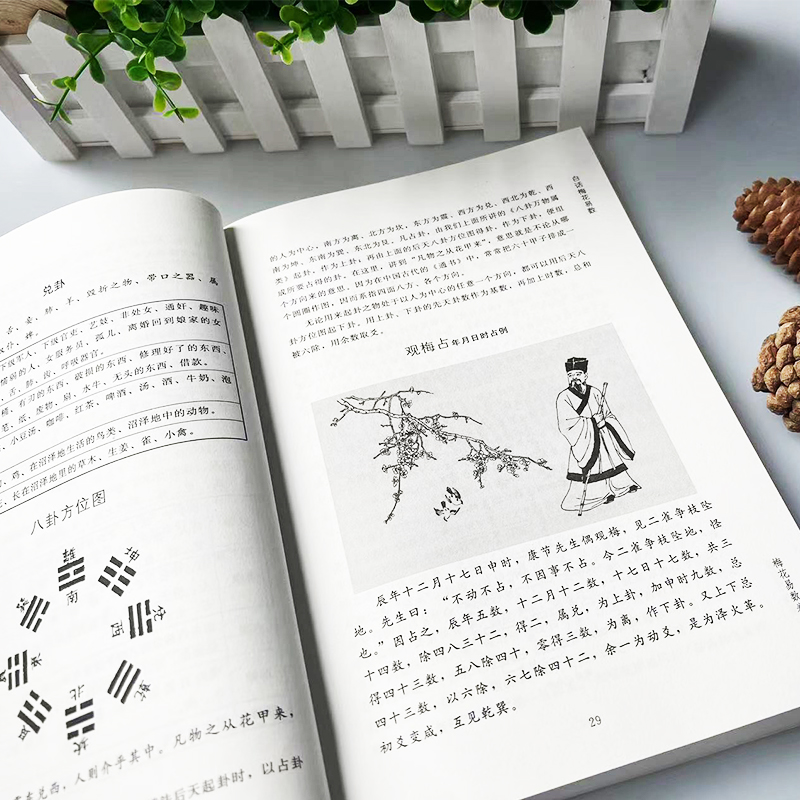 兑卦
舌、妾、肺、羊、毁折之物、带口之器、属
下级军人、下级官吏、艺妓、非处女、通奸、趣味
情弱的人、女服务员、孤儿、离婚回到娘家的女
舌、肺、痰、呼吸器官。
桶、有刃的东西、破损的东西、修理好了的东西、
笔、纸、废物、扇、水牛、无头的东西、借款。
、小豆汤、咖啡、红茶、啤酒、汤、酒、牛奶、泡
、鸡、在沼泽地生活的鸟类、沼泽地中的动物。
、长在沼泽地里的草木、生姜、雀、小禽。
八卦方位图
南
西
北
东兑西，人则介乎其中。凡物之从花甲来，
后天起卦时，以占卦
白话梅花易数
的人为中心，南方为离、北方为坎、东方为震、西方为兑、西北为乾、西
南为坤、东南为巽、东北为艮。凡占卦，由我们上面所讲的《八卦万物属
类》起卦，作为上卦；再由上面的后天八卦方位图得卦，作为下卦，便组
成所要占得的卦。在这里，讲到“凡物之从花甲来”，意思就是不论从哪
个方向来的意思。因为在中国古代的《通书》中，常常把六十甲子排成一
个圆圈作图，因而系指四面八方、各个方向。
无论用来起卦之物处于以人为中心的任意一个方向，都可以用后天八
卦方位图起下卦。用上卦、下卦的先天卦数作为基数，再加上时数，总和
被六除，用余数取爻。
观梅占年月日时占例
辰年十二月十七日申时，康节先生偶观梅，见二雀争枝坠
地。先生曰：“不动不占，不因事不占。今二雀争枝坠地，怪
也。”因占之，辰年五数，十二月十二数，十七日十七数，共三
十四数，除四八三十二，得二，属兑，为上卦，加申时九数，总
得四十三数，五八除四十，零得三数，为离，作下卦。又上下总
四十三数，以六除，六七除四十二，余一为动爻，是为泽火革。
初爻变成，互见乾巽。
梅花易数
29